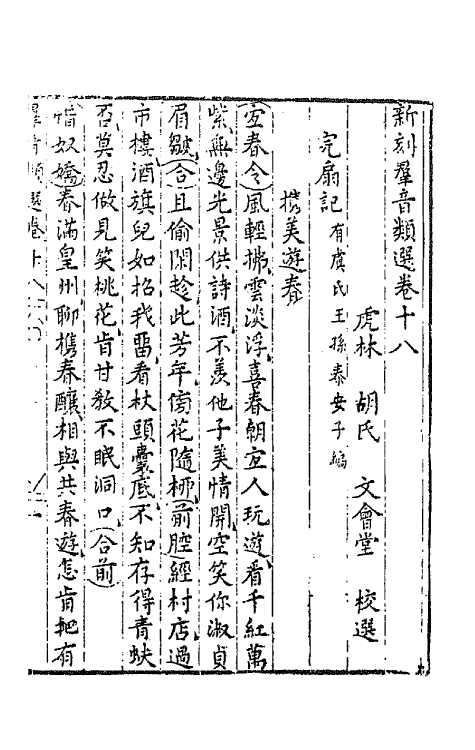 新刻羣音類選卷十八
虎林 胡氏 文會堂 校選
完扇記 有虞氏王孫泰安子編
擕美遊春
宜春令 風輕拂雲淡浮喜春朝宜人玩遊看千紅萬
紫無邊光景供詩酒不羨他子美情開空笑你淑貞
眉皺 合 且偷閑趁此芳年傍花隨柳 前腔 經村店過
市樓酒旗兒如招我畱看杖頭囊底不知存得青蚨
否莫忍做見笑桃花肯甘教不眠洞口 合前
惜奴嬌 春滿皇州聊擕春釀相與共春遊怎肯把有
羣音類選卷十八